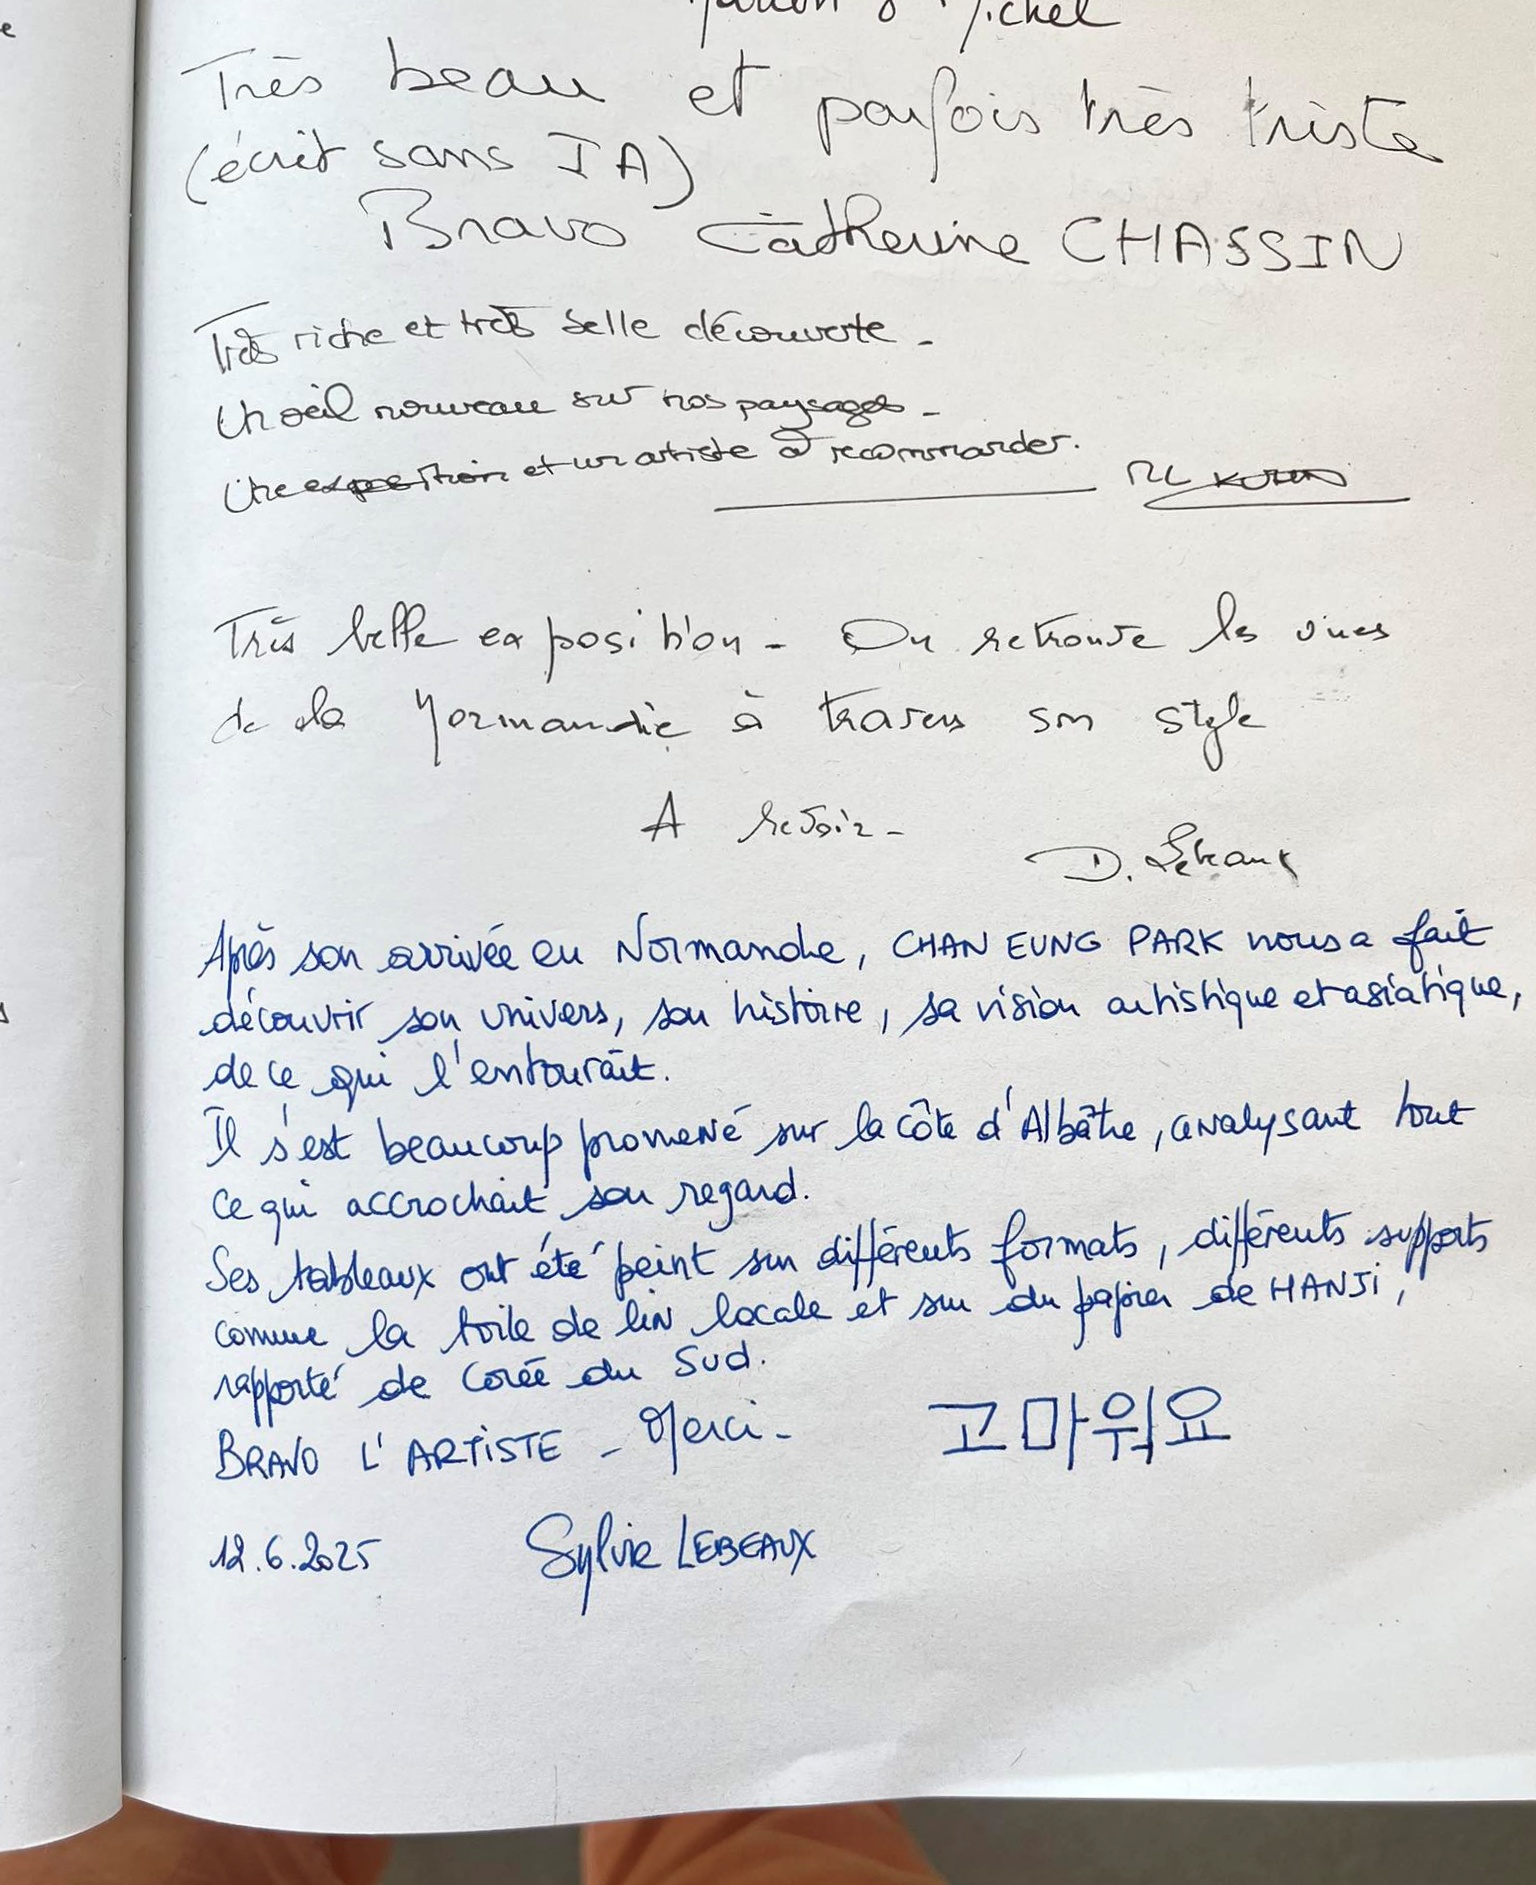 Michel
Très beau et parfois très triste
(écrit sans IA)
Bravo Catherine CHASSIN
Très riche et très belle découverte -
Un oeil nouveau sur nos paysages -
Une exposition et un artiste à recommander.
Très belle exposition - On retrouve les vues
de la Normandie à travers son style
A revoir -
D.
Après son arrivée en Normandie, CHAN EUNG PARK nous a fait
découvrir son univers, son histoire, sa vision artistique et asiatique,
de ce qui l'entourait.
Il s'est beaucoup promené sur la côte d'Albâtre, analysant tout
ce qui accrochait son regard.
Ses tableaux ont été peint sur différents formats, différents supports
comme la toile de lin locale et sur du papier de HANJI,
rapporté de Corée du Sud.
BRAVO L'ARTISTE - Merci - 고마워요
12.6.2025 Sylvie LEBEAUX